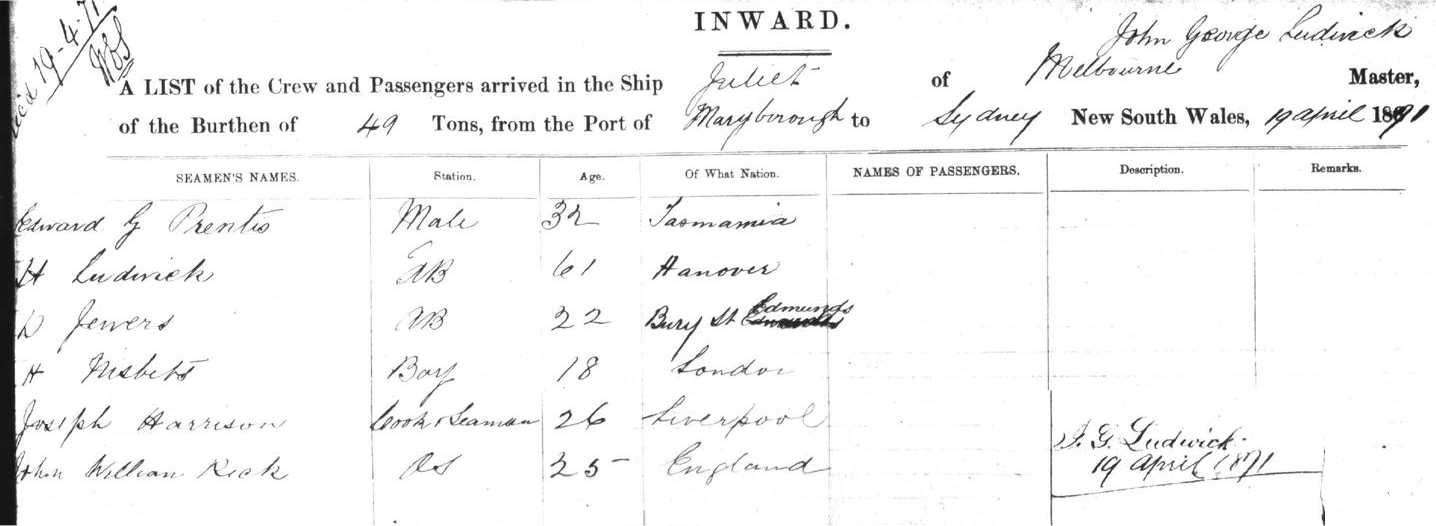 rec'd 19-4-71
INWARD.
John George Ludwick
A LIST of the Crew and Passengers arrived in the Ship Juliet of Melbourne Master,
of the Burthen of 49 Tons, from the Port of Maryborough to Sydney New South Wales, 19 april 1871
SEAMEN'S NAMES. Station. Age. Of What Nation. NAMES OF PASSENGERS. Description. Remarks.
Edward G Prentis Mate 32 Tasmania
H Ludwick AB 61 Hanover
D Jewers AB 22 Bury St Edmunds
H Nisbets Boy 18 London
Joseph Harrison Cook & Seaman 26 Liverpool
John William Rick OS 25 England
J. G. Ludwick
19 april 1871